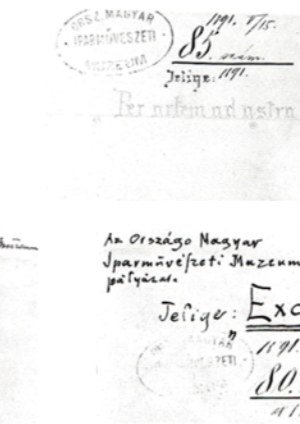 ORSZ. MAGYAR
IPARMŰVÉSZETI
1891. V/15.
85 szám.
Jelige: 1891.
"Per artem ad astra
Az Országo Magyar
Iparművészeti Muzeum
pályázat.
Jelige: Exc
"
1891.
MAGYAR
80.